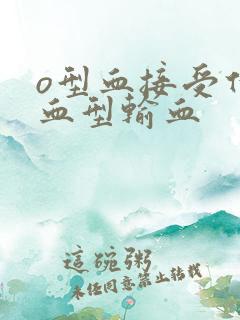 o型血接受什
血型輸血
這碗粥
未任同意禁止转载